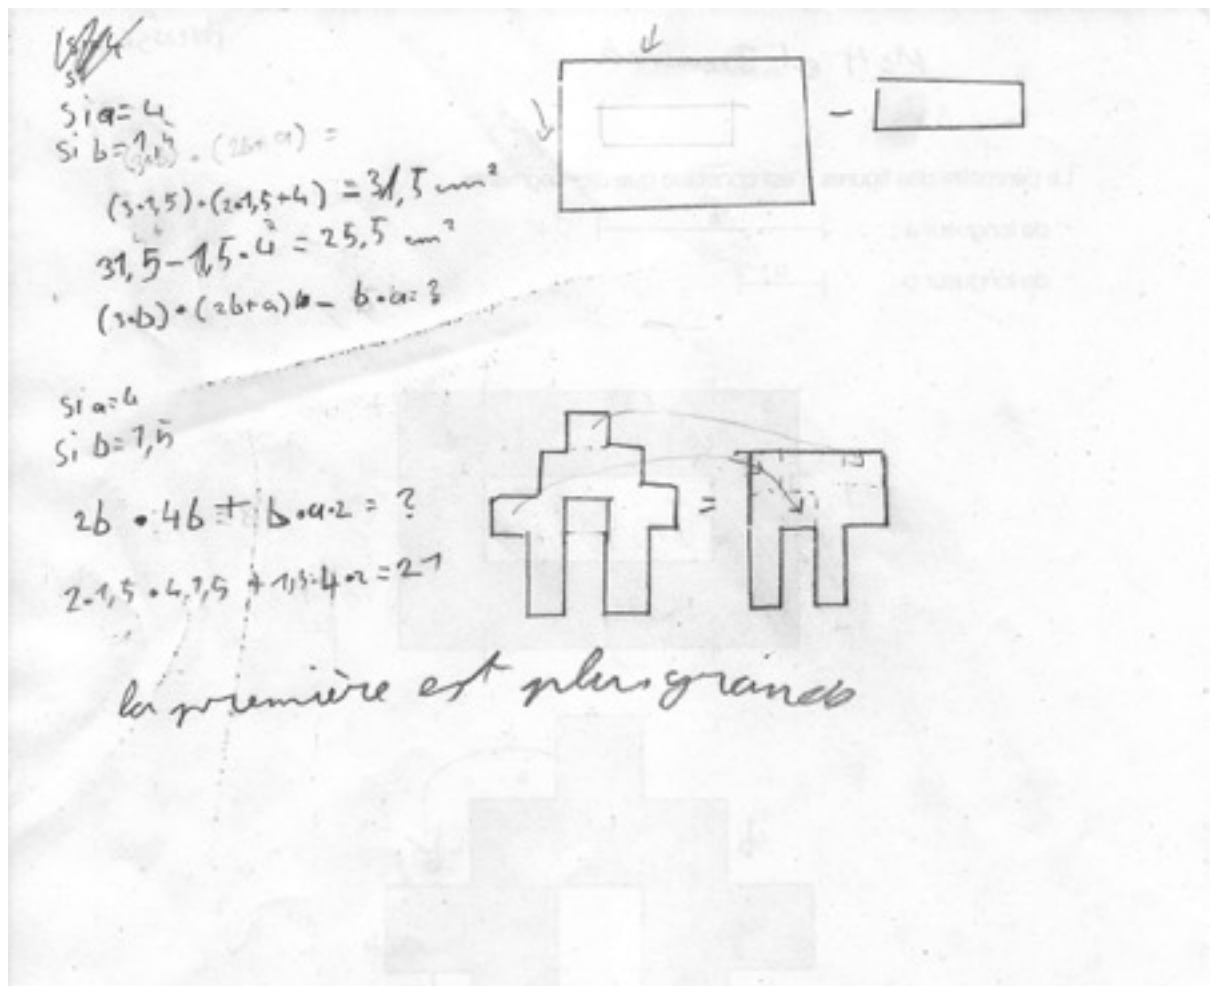 si
si a=4
si b=1,5
(3·b) · (2b+a) =
(3·1,5)·(2·1,5+4) = 31,5 cm²
31,5-1,5·4 = 25,5 cm²
(3·b)·(2b+a) - b·a=?
si a=4
si b=1,5
2b · 4b + b·a·2 = ?
2·1,5 · 4·1,5 + 1,5·4·2 = 21
la première est plus grande